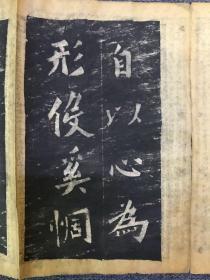 自以心為
形役奚惆